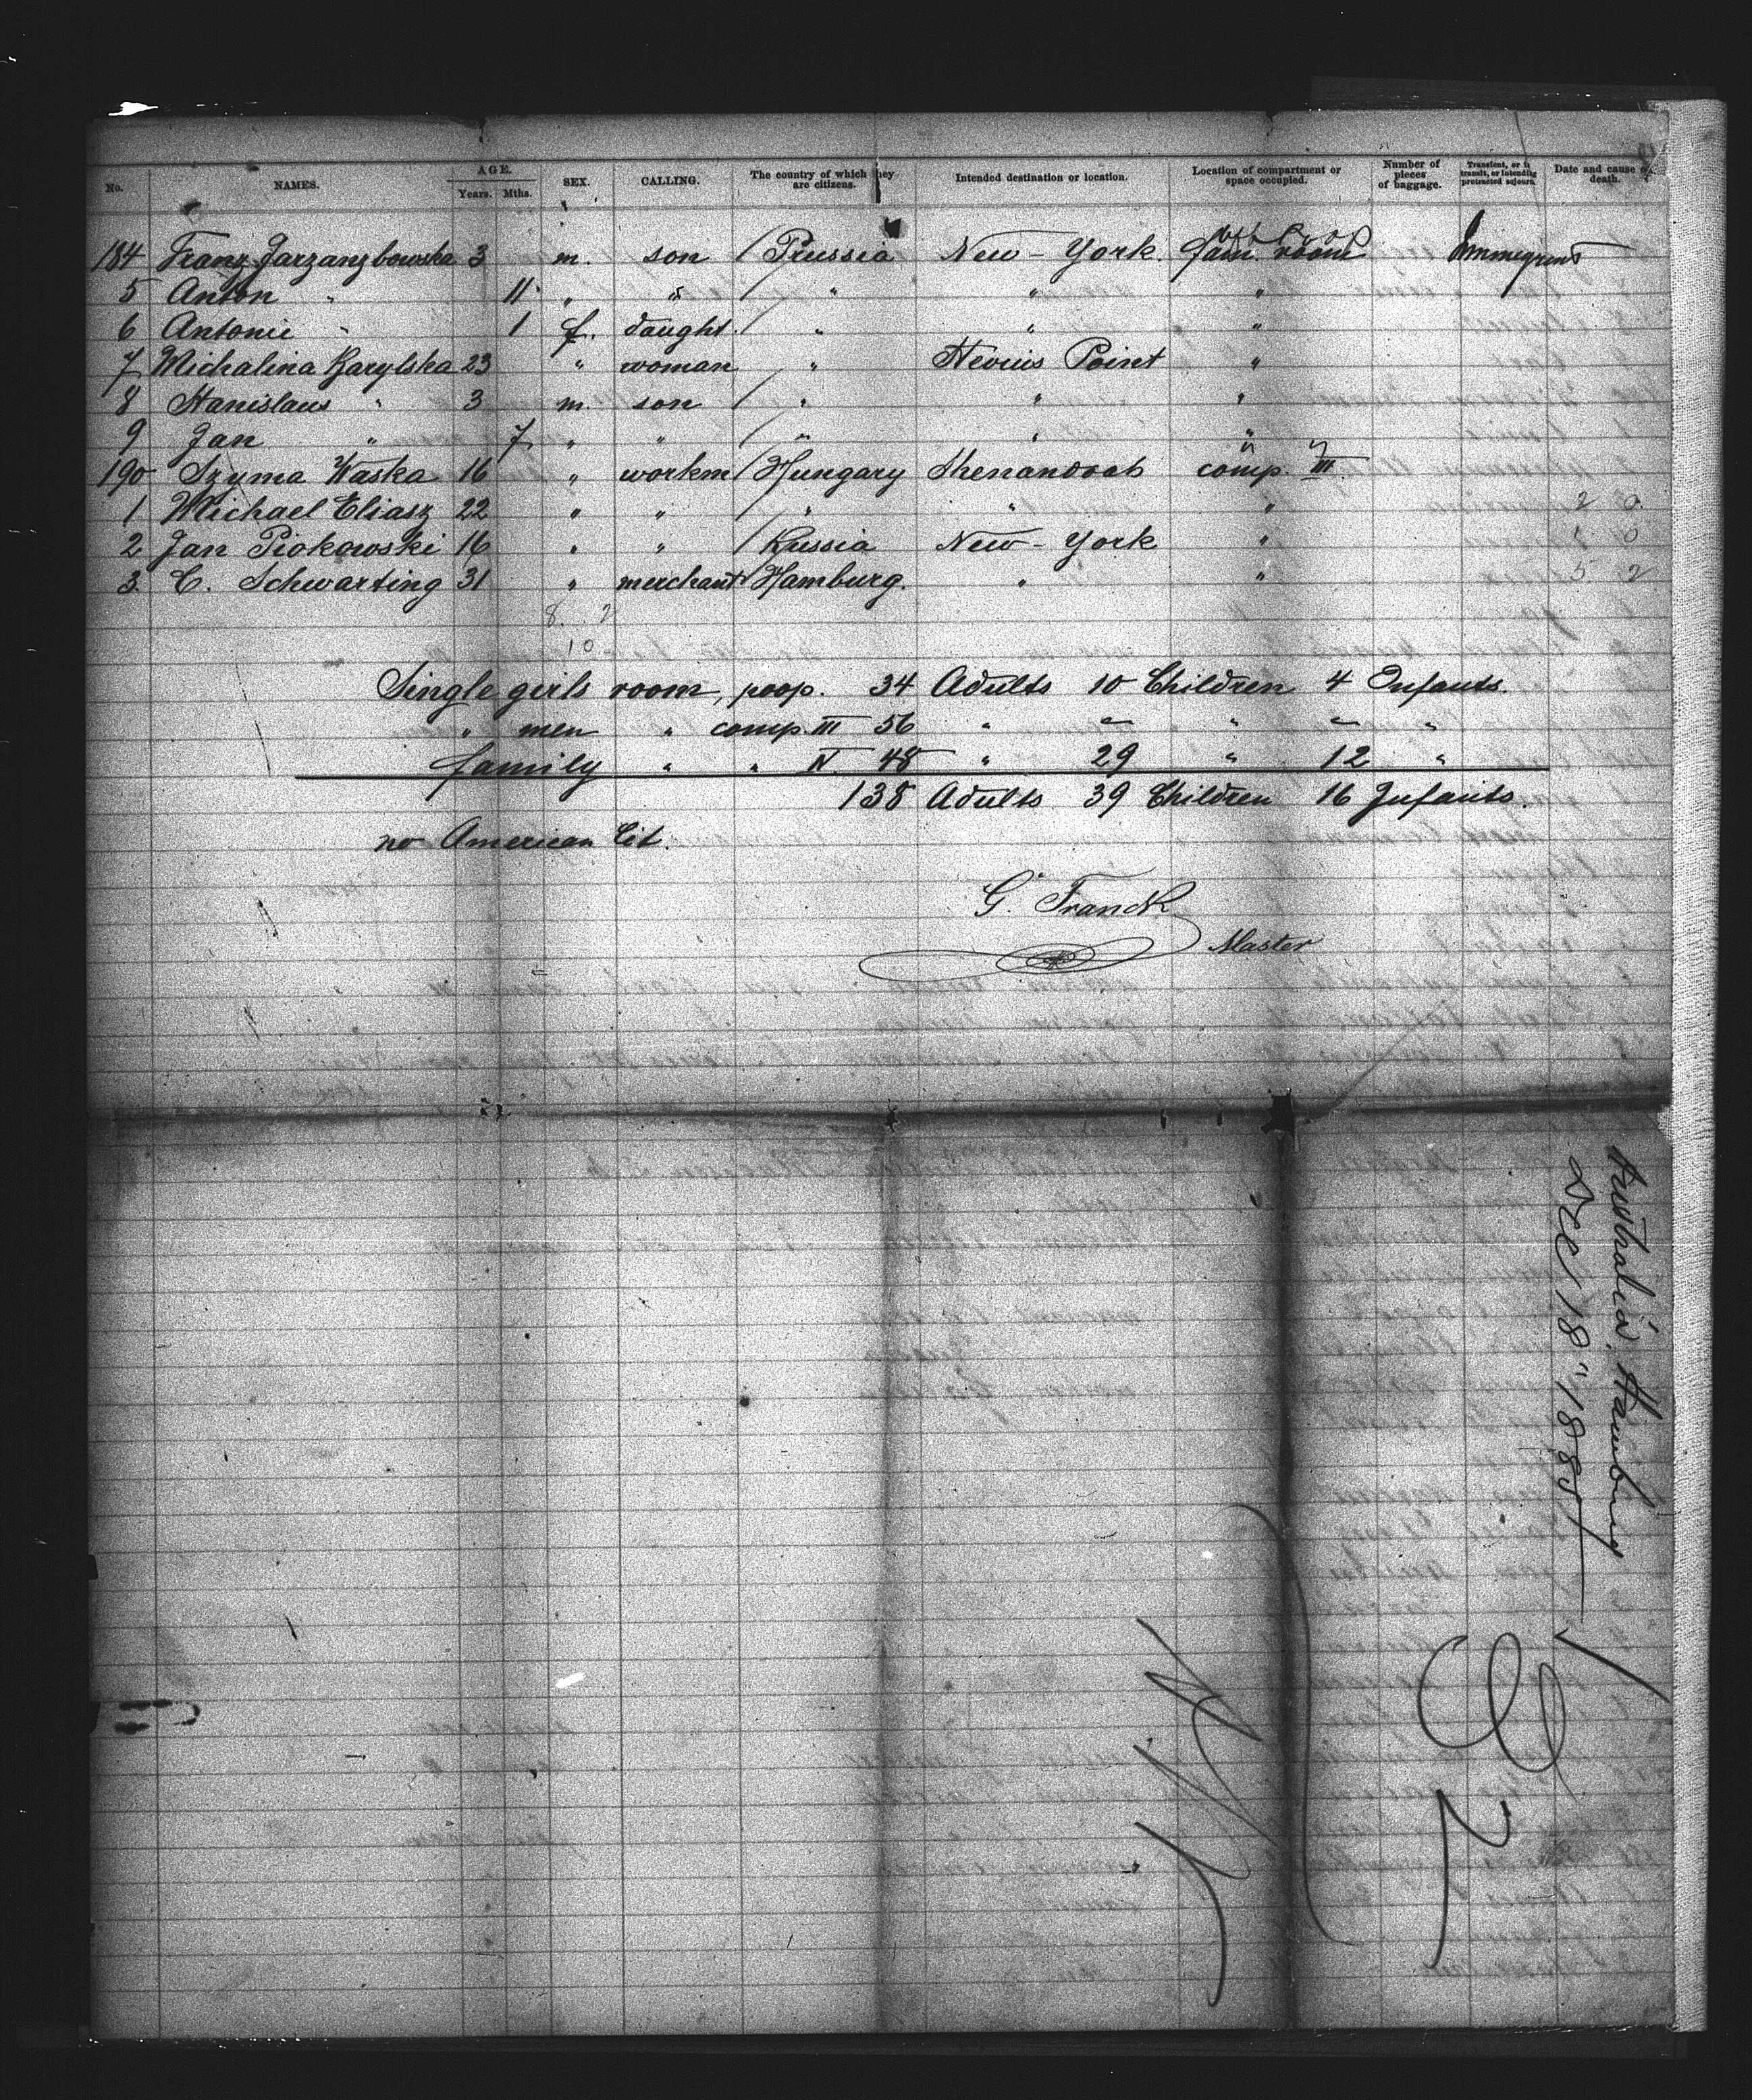 No. NAMES. AGE. Years. Mths. SEX. CALLING. The country of which they are citizens. Intended destination or location. Location of compartment or space occupied. Number of pieces of baggage. Transient, or in transit, or intending protracted sojourn. Date and cause of death.
184 Franz Jarzanzbowska 3 m. son Prussia New-York. fam. room
5 Anton " 11 " " " " "
6 Antonie " 1 f. daught. " " "
7 Michalina Karylska 23 " woman " Point "
8 Stanislaus " 3 m. son " " "
9 Jan " 7 " " " " "
190 Szyma Waska 16 " workm Hungary Shenandoah comp. III.
1 Michael Eliasz 22 " " " " " 2 0
2 Jan Piokowski 16 " " Russia New-York " 0
3 C. Schwarting 31 " merchant Hamburg. " " 5 2
8. 2
10
Single girls room, poop. 34 Adults 10 Children 4 Infants.
" men " comp. III 56 " – " – "
family " " IV. 48 " 29 " 12 "
138 Adults 39 Children 16 Infants.
no American Cit.
G. Franck
Master
Australia, Hamburg
Dec 18" 1885